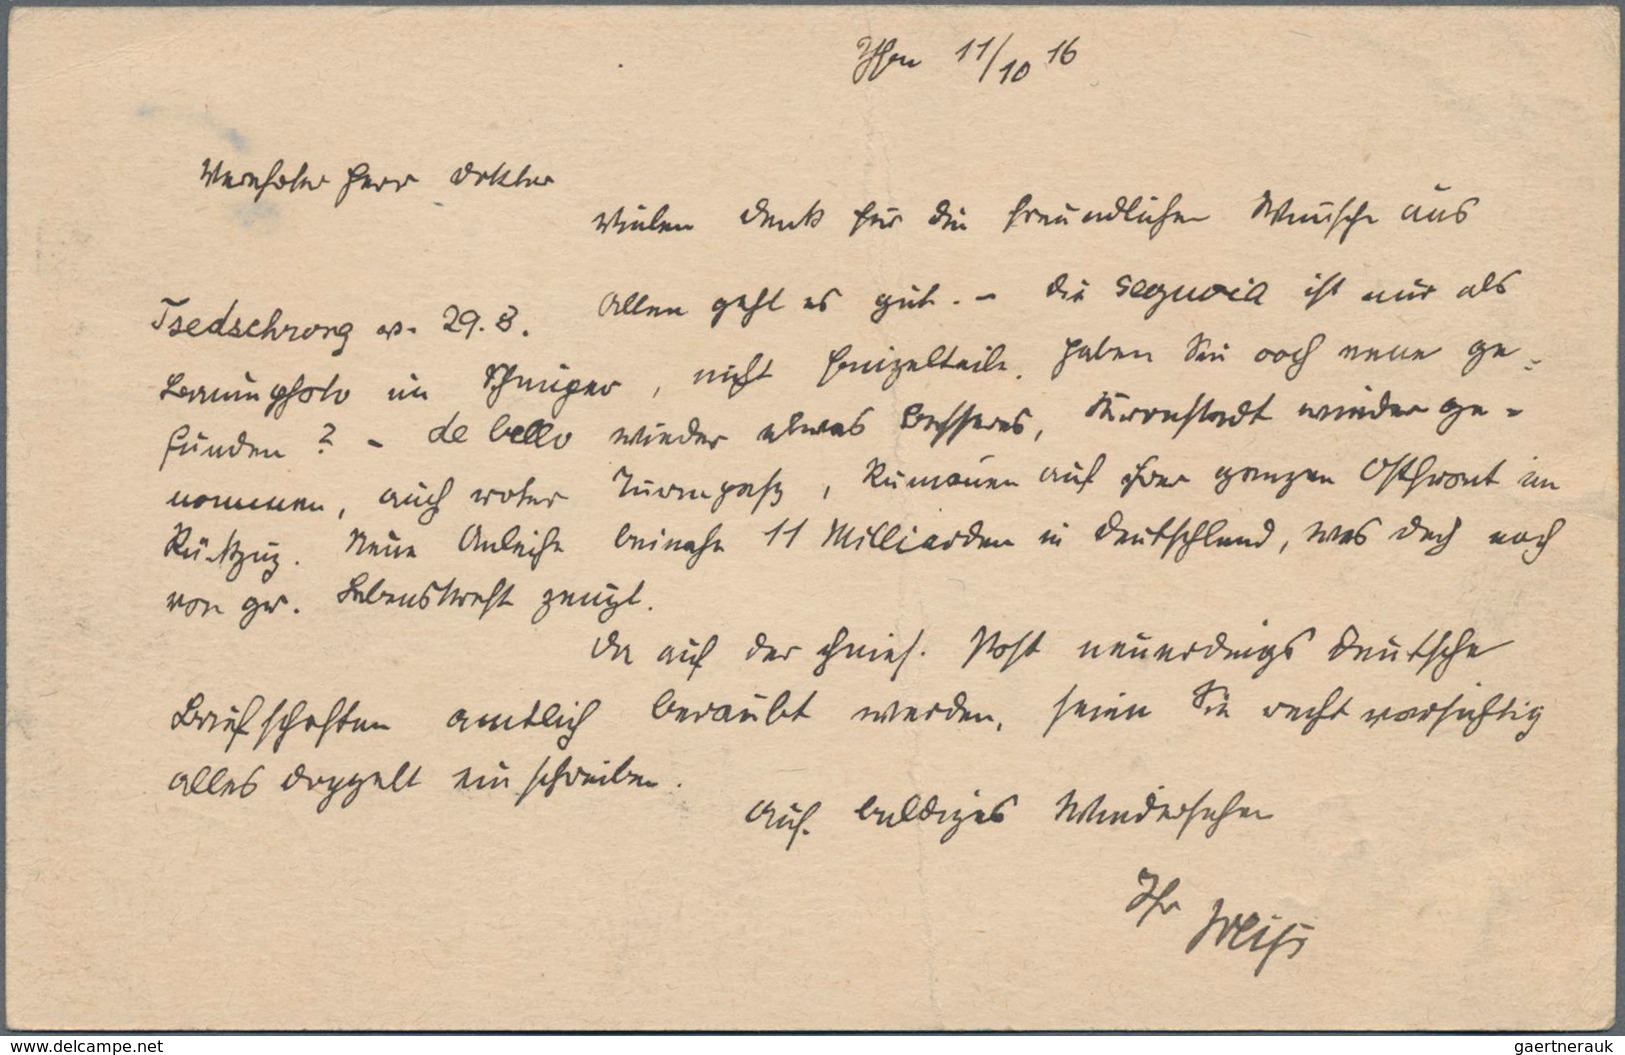 11/10 16
Verehrter Herr Doktor
Vielen Dank für die freundlichen Wünsche aus
Tsedschrong v. 29.8. Allen geht es gut. – Die Sequoia ist nur als
Baumphoto im, nicht Einzelteile. Haben Sie noch neue ge-
funden? – de bello wieder etwas besseres, Kronstadt wieder ge-
nommen, auch roter Turmpaß, Rumänen auf der ganzen Ostfront im
Rückzug. Neue Anleihe beinahe 11 Milliarden in Deutschland, was doch noch
von gr. Lebenskraft zeugt.
Da auf der chines. Post neuerdings Deutsche
Briefschaften amtlich beraubt werden, seien Sie recht vorsichtig
alles doppelt einschreiben.
Auf baldiges Wiedersehen
Ihr Weiss
www.delcampe.net
gaertnerauk